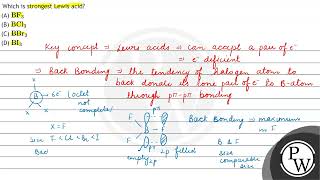 Which is strongest Lewis acid?
(A) BF₃
(B) BCl₃
(C) BBr₃
(D) BI₃
Key concept ⇒ Lewis acids ⇒ can accept a pair of e⁻
⇒ e⁻ deficient
⇒ Back Bonding ⇒ the tendency of halogen atom to
back donate its lone pair of e⁻ to B-atom
through pπ-pπ bonding
X
B → 6e⁻ (octet
not
complete)
X X
X = F
size F < Cl < Br < I
Bad
F
B
F
F
pπ
empty
2p filled
Back Bonding → maximum
in F
B & F
size
comparable
size
PW